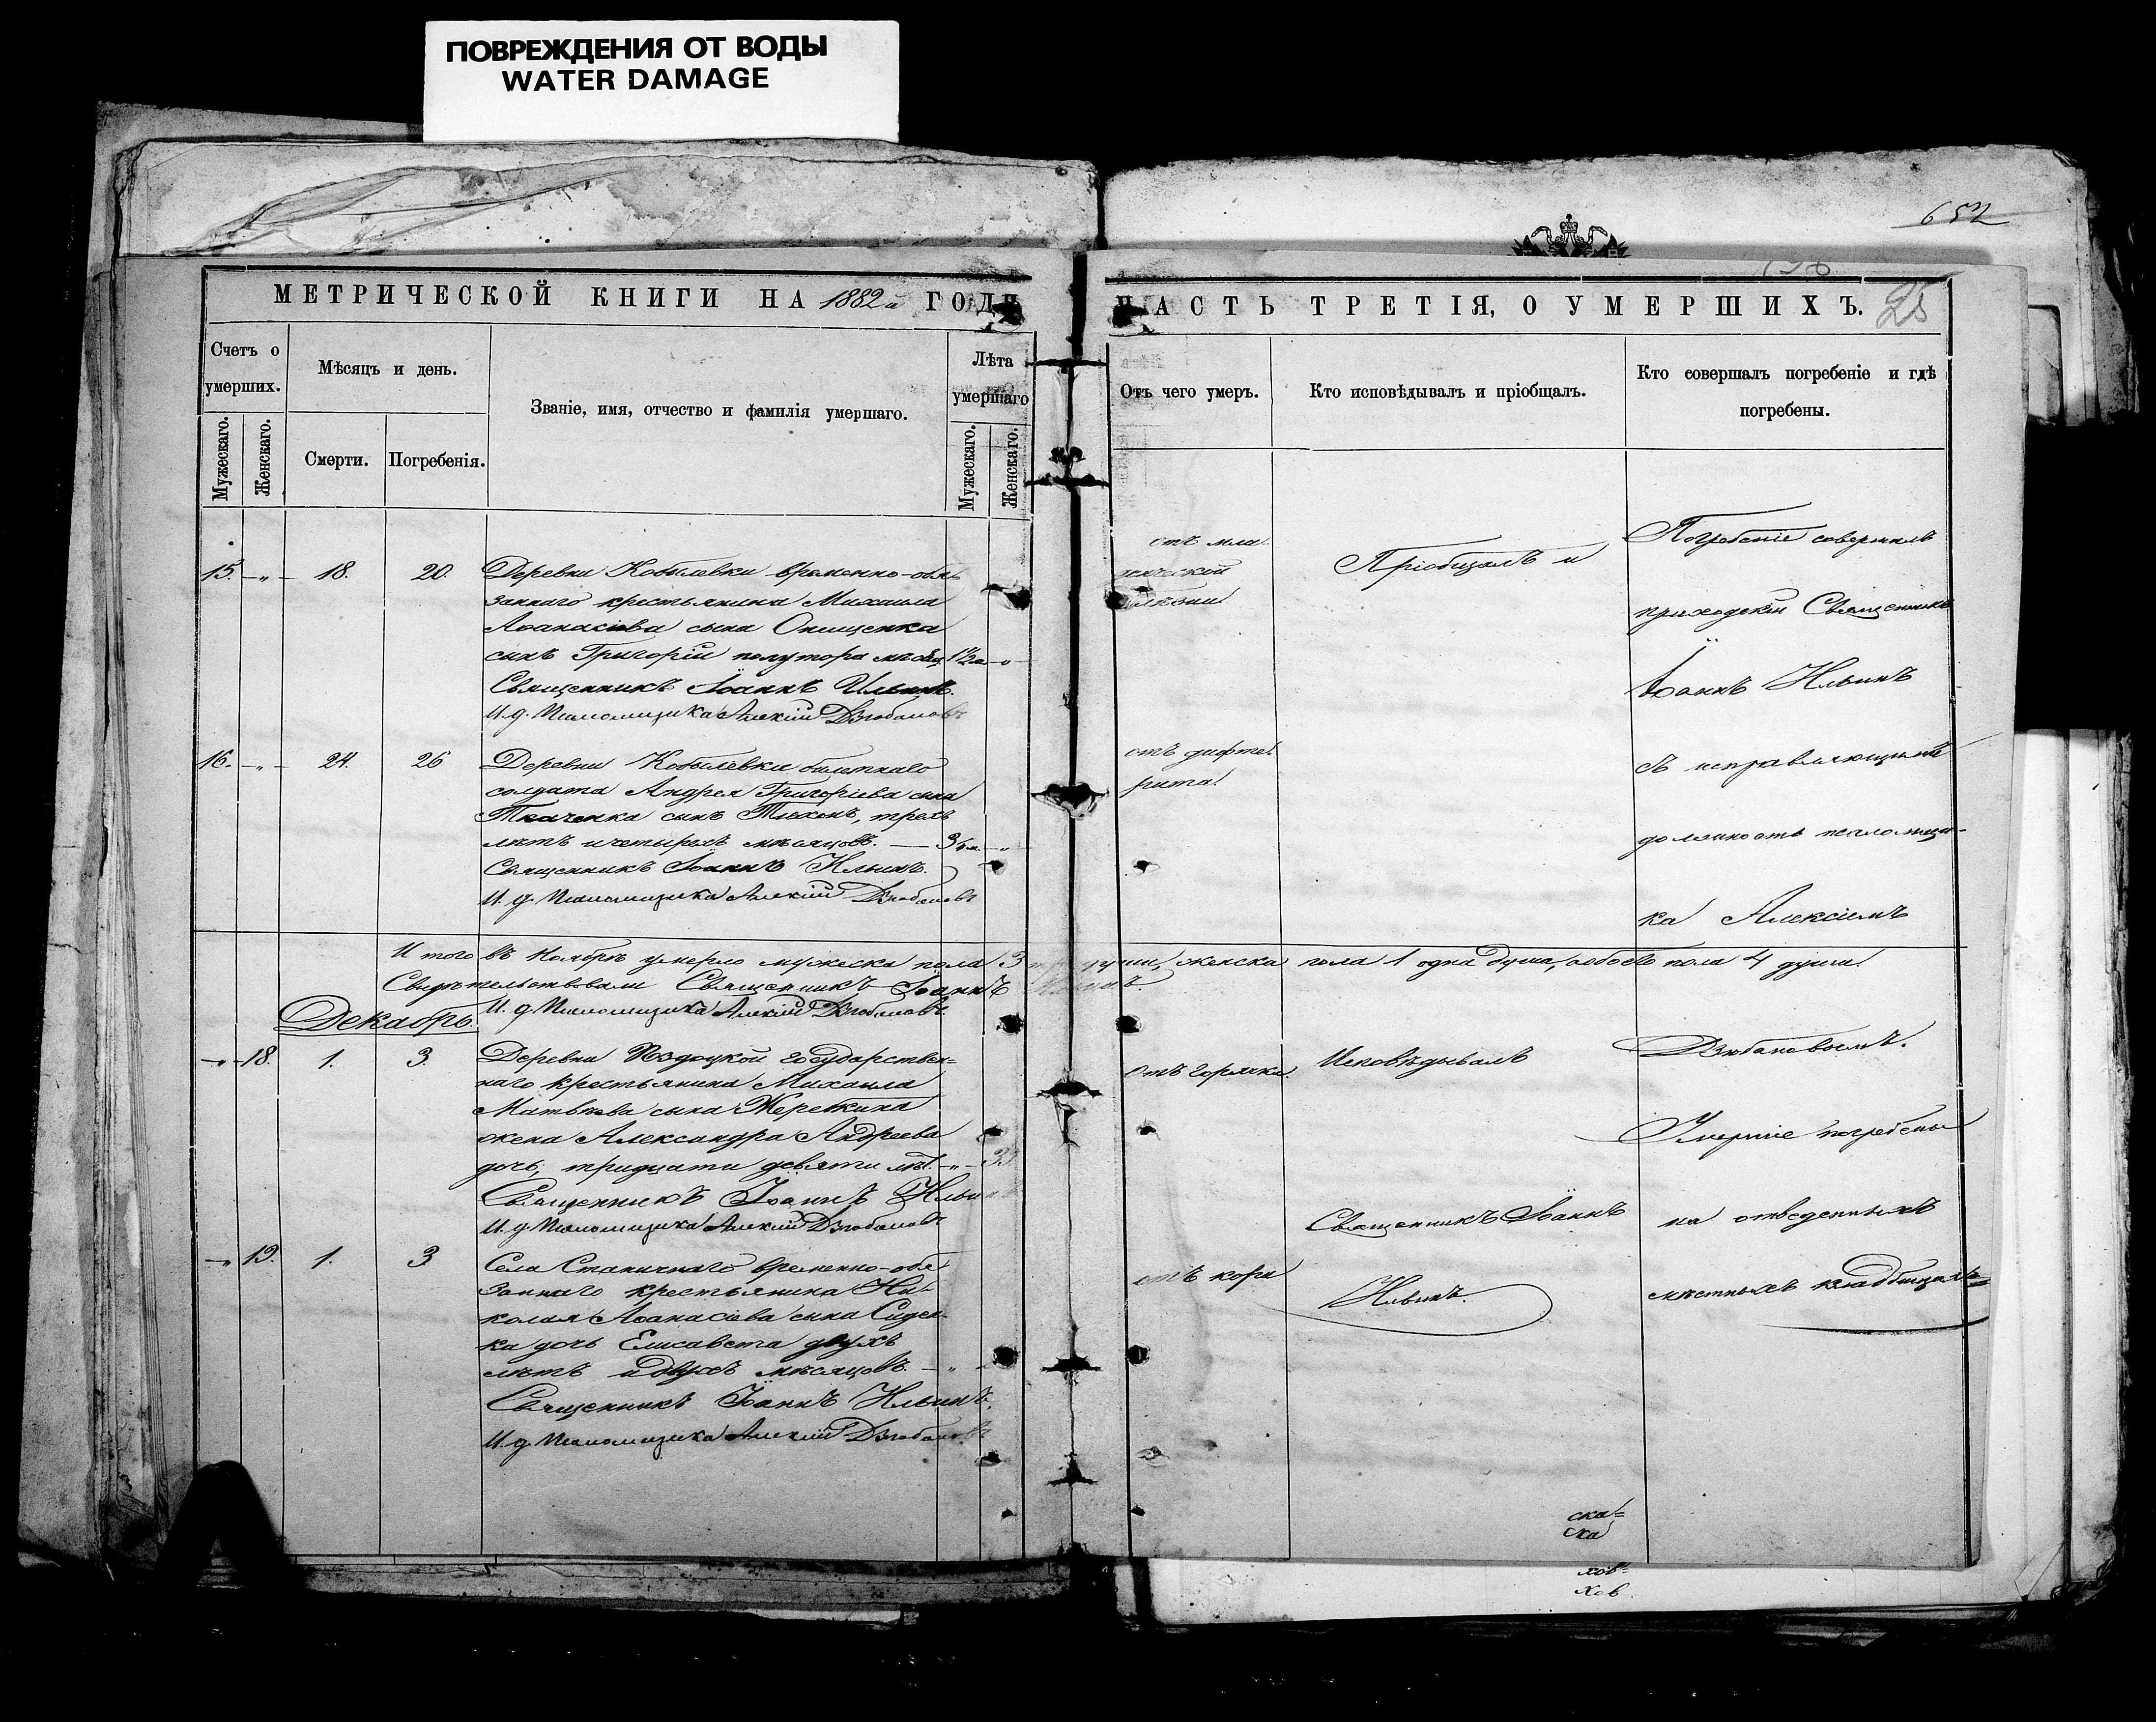 ПОВРЕЖДЕНИЯ ОТ ВОДЫ
WATER DAMAGE
652
МЕТРИЧЕСКОЙ КНИГИ НА 1882й ГОДЪ
Счетъ о умерших.
Мѣсяцъ и день.
Званіе, имя, отчество и фамилія умершаго.
Лѣта умершаго
Мужескаго.
Женскаго.
Смерти.
Погребенія.
Мужескаго.
Женскаго.
15. — „ — 18. 20. Деревни Кобылевки временно-обя-
заннаго крестьянина Михаила
Аѳанасіева сына Онищенка
сынъ Григорій полутора 1½
Священникъ Іоаннъ Ильинъ.
И. д. Псаломщика Алексій Дзюбановъ
16. — „ — 24. 26 Деревни Кобылевки билетнаго
солдата Андрея Григоріева сына
Ткаченка сынъ Тихонъ, трехъ
лѣтъ и четырехъ мѣсяцовъ. — 3
Священникъ Іоаннъ Ильинъ.
И. д. Псаломщика Алексій Дзюбановъ
Итого въ Ноябрѣ умерло мужеска пола 3
Свидѣтельствовали Священникъ Іоаннъ
И. д. Псаломщика Алексій Дзюбановъ
Декабрь.
— „ — 18. 1. 3. Деревни государствен=
наго крестьянина Михаила
Матвѣева сына Жеребкина
жена Александра Андреева
дочь, тридцати девяти лѣт. — „ —
Священникъ Іоаннъ Ильи
И. д. Псаломщика Алексій Дзюбановъ
— „ 19. 1. 3 Села Станичнаго временно-обя
заннаго крестьянина Ни-
колая Аѳанасіева сына Сиден-
ка дочь Елисавета двухъ
лѣтъ и двухъ мѣсяцовъ. — „ —
Священникъ Іоаннъ Ильинъ.
И. д. Псаломщика Алексій Дзюбановъ
ЧАСТЬ ТРЕТІЯ, О УМЕРШИХЪ.
25
Отъ чего умеръ.
Кто исповѣдывалъ и пріобщалъ.
Кто совершалъ погребеніе и гдѣ погребены.
отъ мла
денческой
болѣзни
отъ дифте
рита.
души, женска пола 1 одна душа, обоего пола 4 души.
отъ горячки.
отъ кори
Пріобщалъ и
Исповѣдывалъ
Священникъ Іоаннъ
Ильинъ.
Погребеніе совершалъ
приходскій Священникъ
Іоаннъ Ильинъ
съ исправляющимъ
должность псаломщи-
ка Алексіемъ
Дзюбановымъ.
Умершіе погребены
на отведенныхъ
мѣстныхъ кладбищахъ
ска=
ска
хов=
хов